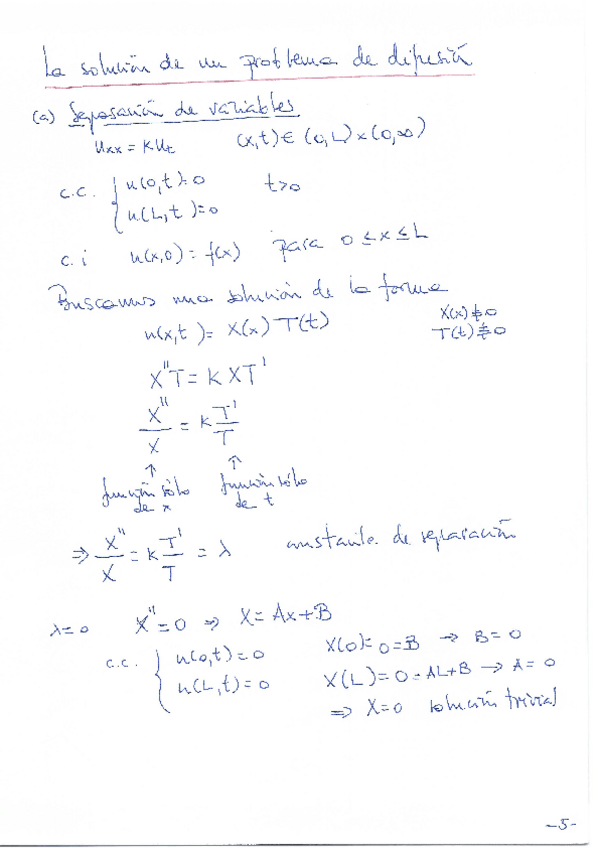 La solución de un problema de difusión
(a) Separación de variables
u_xx = K u_t (x,t) ∈ (0,L) × (0,∞)
c.c. { u(0,t)=0 t>0
u(L,t)=0
c.i u(x,0) = f(x) para 0 ≤ x ≤ L
Buscamos una solución de la forma
u(x,t) = X(x) T(t) X(x) ≢ 0
T(t) ≢ 0
X''T = K XT'
X''/X = K T'/T
↑ ↑
función sólo de x función sólo de t
⇒ X''/X = K T'/T = λ constante de separación
λ=0 X''=0 ⇒ X = Ax+B
c.c. { u(0,t)=0 X(0)=0=B → B=0
u(L,t)=0 X(L)=0=AL+B → A=0
⇒ X=0 solución trivial
-5-